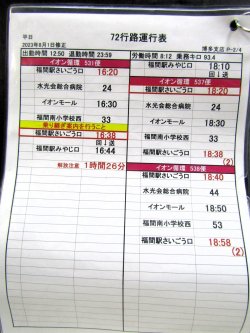 平日
72行路運行表
博多支店 P-2/4
2023年8月1日修正
出勤時間 12:50 退勤時間 23:59
労働時間 8:12 乗務キロ 93.4
イオン循環 531便
福間駅さいごう口 16:20
水光会総合病院 24
イオンモール 16:30
福間南小学校西 33
乗り継ぎ案内を行うこと
福間駅さいごう口 16:38
回1送
福間駅みやじ口 16:44
解放注意 1時間26分
福間駅みやじ口 18:10
回1送
イオン循環 537便
福間駅さいごう口 18:20
水光会総合病院 24
イオンモール 18:30
福間南小学校西 33
福間駅さいごう口 18:38
(2)
イオン循環 538便
福間駅さいごう口 18:40
水光会総合病院 44
イオンモール 18:50
福間南小学校西 53
福間駅さいごう口 18:58
(2)